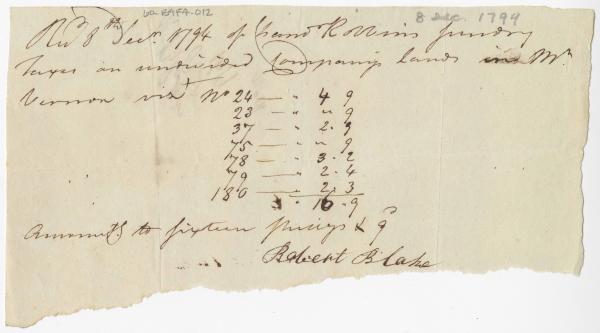 60-EAFA-012
8 Dec. 1794
Recd 8th Decr 1794 of Chandr Robbins sundry
Taxes on undivided Company's lands in Mt
Vernon vizt No 24 — " 4 9
23 — " " 9
37 — " 2 - 9
75 — " " 9
78 — " 3 - 2
79 — " 2 - 4
180 — " 2 - 3
" 16 - 9
Amountg to sixteen shillgs & 9d
Robert Blake